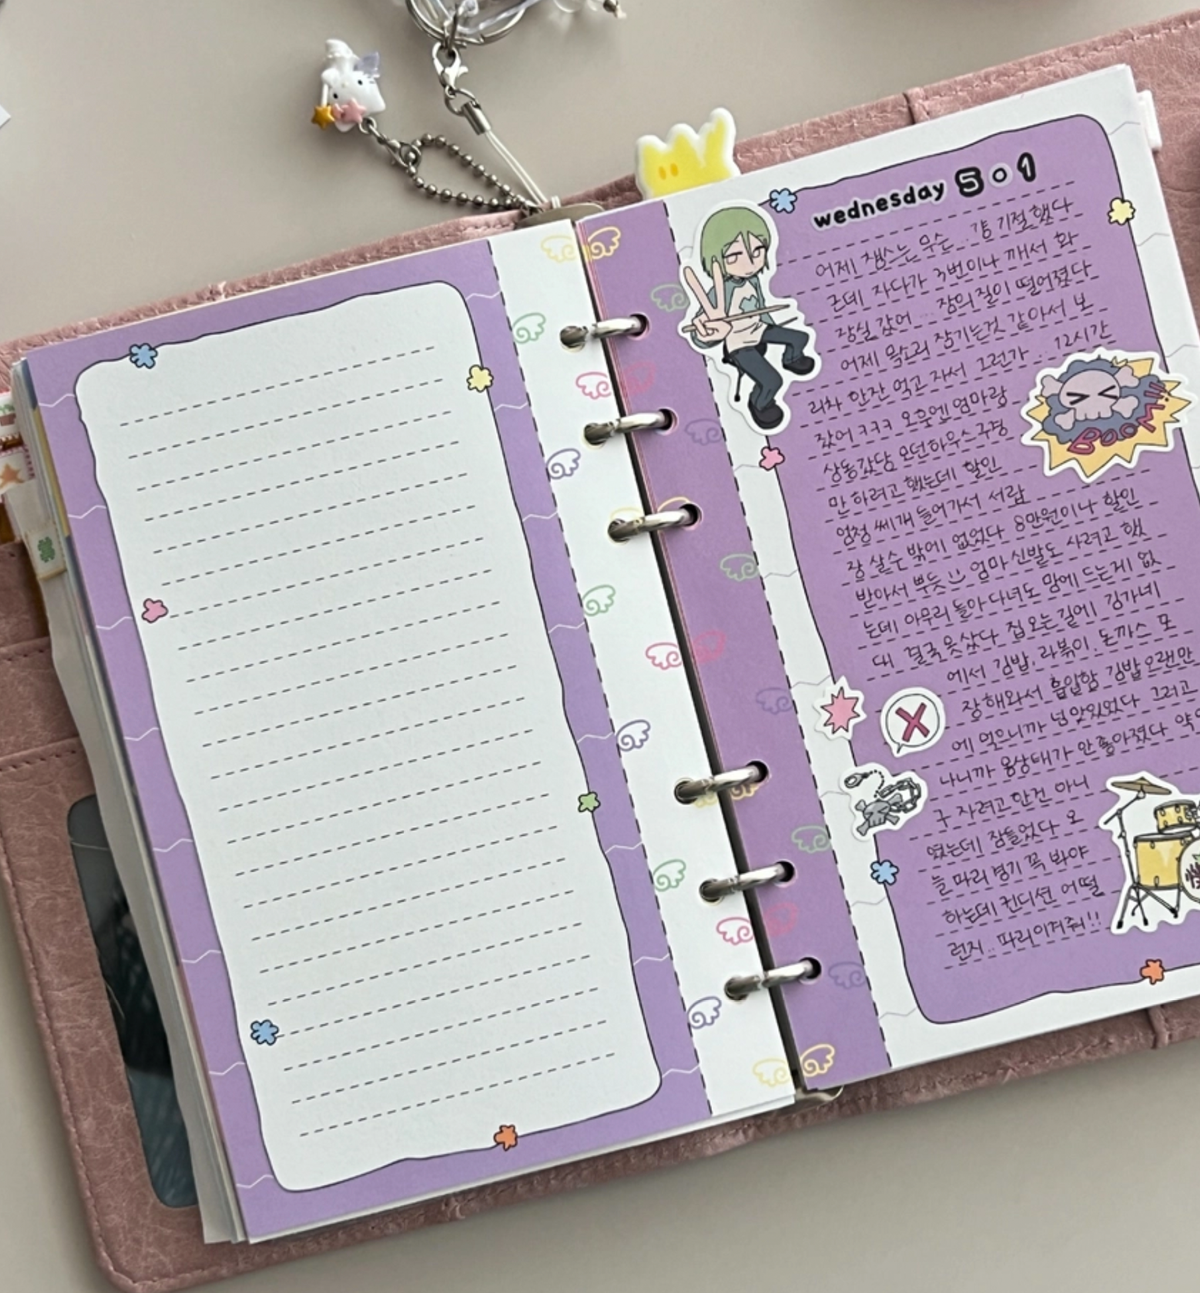 wednesday 5 0 1
어제 챔스는 무슨... 걍 기절했다
근데 자다가 3번이나 깨서 화
장실 갔어... 장의 질이 떨어졌다
어제 목소리 잠기는것 같아서 보
리차 한잔 먹고 자서 그런가.. 12시간
잤어 ㅋㅋㅋ 오후엔 엄마랑
상동갔당 모던하우스 구경
만 하려고 했는데 할인
엄청 쎄게 들어가서 서랍
장 살수 밖에 없었다 8만원이나 할인
받아서 뿌듯 :) 엄마 신발도 사려고 했
는데 아무리 돌아다녀도 맘에 드는게 없
대 결국 못샀다 집 오는 길에 김가네
에서 김밥, 라볶이, 돈까스 포
장해와서 흡입함 김밥 오랜만
에 먹으니까 넘 맛있었다 그러고
나니까 몸상태가 안 좋아졌다 약
구 자려고 한건 아니
였는데 잠들었다 오
늘 파리 경기 꼭 봐야
하는데 컨디션 어떨
런지.. 파리 이겨줘!!
BOOM!!!